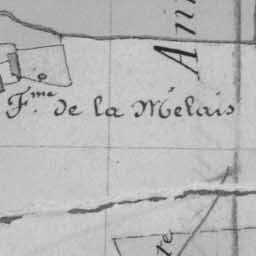 Ann
F.me de la Mélais
re